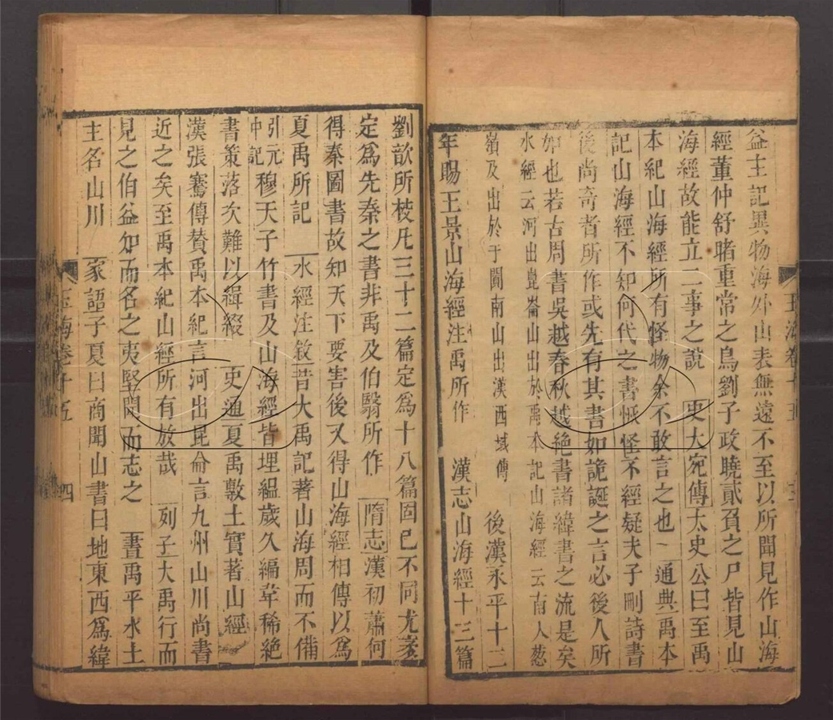 益主記異物海外山表無遠不至以所聞見作山海
經董仲舒睹重常之鳥劉子政曉貳負之尸皆見山
海經故能立二事之說 史大宛傳太史公曰至禹
本紀山海經所有怪物余不敢言之也 通典禹本
記山海經不知何代之書恢怪不經疑夫子刪詩書
後尚奇者所作或先有其書如詭誕之言必後人所
加也若古周書吳越春秋越絕書諸緯書之流是矣
水經云河出崑崙山出於禹本記山海經云南入葱
嶺及出於于闐南山出漢西域傳 後漢永平十二
年賜王景山海經注禹所作 漢志山海經十三篇
玉海卷十五 三
劉歆所校凡三十二篇定爲十八篇固已不同尤袤
定爲先秦之書非禹及伯翳所作 隋志漢初蕭何
得秦圖書故知天下要害後又得山海經相傳以爲
夏禹所記 水經注敘昔大禹記著山海周而不備
引元中記 穆天子竹書及山海經皆埋縕歲久編韋稀絕
書策落次難以緝綴 史通夏禹敷土實著山經
漢張騫傳贊禹本紀言河出昆侖言九州山川尚書
近之矣至禹本紀山經所有放哉 列子大禹行而
見之伯益知而名之夷堅聞而志之 書禹平水土
主名山川 家語子夏曰商聞山書曰地東西爲緯
玉海卷十五 四